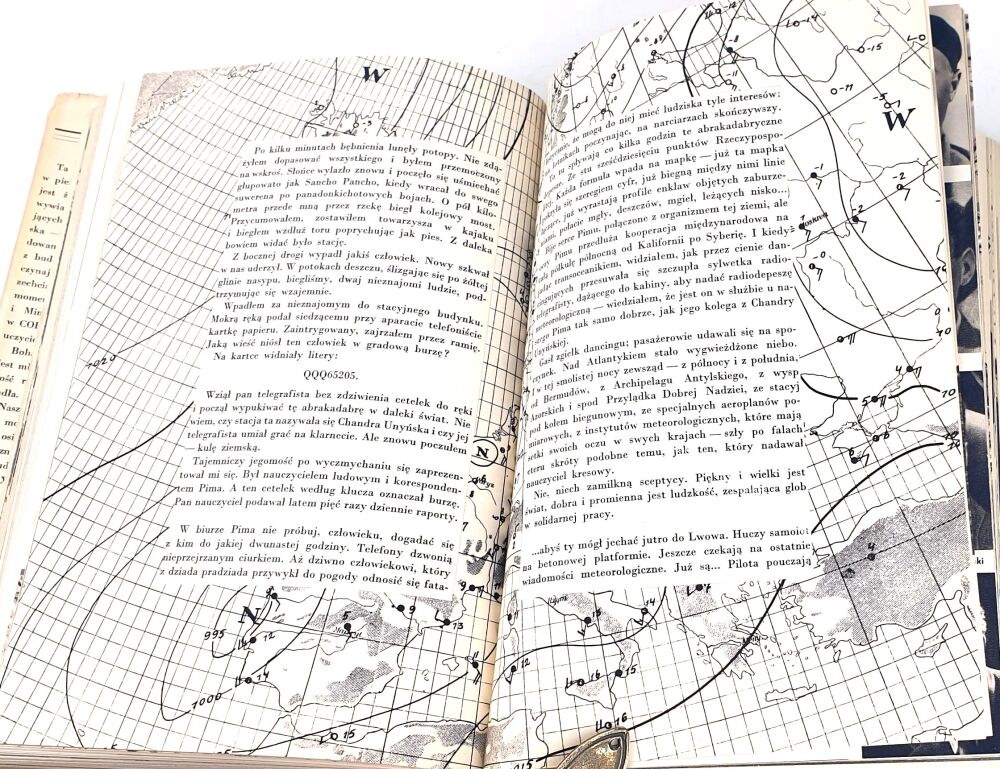 W
Po kilku minutach bębnienia lunęły potopy. Nie zdą-
żyłem dopasować wszystkiego i byłem przemoczony
na wskroś. Słońce wylazło znowu i poczęło się uśmiechać
głupowato jak Sancho Pancho, kiedy wracał do swego
suwerena po panadonkichotowych bojach. O pół kilo-
metra przede mną przez rzekę biegł kolejowy most.
Przycumowałem, zostawiłem towarzysza w kajaku
i biegłem wzdłuż toru poprychując jak pies. Z daleka
bowiem widać było stację.
Z bocznej drogi wypadł jakiś człowiek. Nowy szkwał
w nas uderzył. W potokach deszczu, ślizgając się po żółtej
glinie nasypu, biegliśmy, dwaj nieznajomi ludzie, pod-
trzymując się wzajemnie.
Wpadłem za nieznajomym do stacyjnego budynku.
Mokrą ręką podał siedzącemu przy aparacie telefoniście
kartkę papieru. Zaintrygowany, zajrzałem przez ramię.
Jaką wieść niósł ten człowiek w gradową burzę?
Na kartce widniały litery:
QQQ65205.
Wziął pan telegrafista bez zdziwienia cetelek do ręki
i począł wypukiwać tę abrakadabrę w daleki świat. Nie
wiem, czy stacja ta nazywała się Chandra Unyńska i czy jej
telegrafista umiał grać na klarnecie. Ale znowu poczułem
— kulę ziemską.
Tajemniczy jegomość po wyczmychaniu się zaprezen-
tował mi się. Był nauczycielem ludowym i koresponden-
tem Pima. A ten cetelek według klucza oznaczał burzę.
Pan nauczyciel podawał latem pięć razy dziennie raporty.
W biurze Pima nie próbuj, człowieku, dogadać się
z kim do jakiej dwunastej godziny. Telefony dzwonią
nieprzejrzanym ciurkiem. Aż dziwno człowiekowi, który
z dziada pradziada przywykł do pogody odnosić się fata-
1020
N
N
995
1000
5
12
14
15
9
13
11
W
że mogą do niej mieć ludziska tyle interesów:
lotnikach poczynając, na narciarzach skończywszy.
Tu spływają co kilka godzin te abrakadabryczne
Ze stu sześćdziesięciu punktów Rzeczypospo-
Każda formuła wpada na mapkę — już ta mapka
się szeregiem cyfr, już biegną między nimi linie
już wyrastają profile enklaw objętych zaburze-
połacie mgły, deszczów, mgieł, leżących nisko...)
Bije serce Pimu, połączone z organizmem tej ziemi, ale
Pimu przedłuża kooperacja międzynarodowa na
półkulę północną od Kalifornii po Syberię. I kiedyś
transoceanikiem, widziałem, jak przez cienie dan-
przesuwała się szczupła sylwetka radio-
telegrafisty, dążącego do kabiny, aby nadać radiodepeszę
meteorologiczną — wiedziałem, że jest on w służbie u na-
szego Pima tak samo dobrze, jak jego kolega z Chandry
Unyńskiej.
Gasł zgiełk dancingu; pasażerowie udawali się na spo-
czynek. Nad Atlantykiem stało wygwieżdżone niebo.
I w tej smolistej nocy zewsząd — z północy i z południa,
od Bermudów, z Archipelagu Antylskiego, z wysp
Azorskich i spod Przylądka Dobrej Nadziei, ze stacyj
pod kołem biegunowym, ze specjalnych aeroplanów po-
miarowych, z instytutów meteorologicznych, które mają
setki swoich oczu w swych krajach — szły po falach
eteru skróty podobne temu, jak ten, który nadawał
nauczyciel kresowy.
Nie, niech zamilkną sceptycy. Piękny i wielki jest
świat, dobra i promienna jest ludzkość, zespalająca glob
w solidarnej pracy.
...abyś ty mógł jechać jutro do Lwowa. Huczy samolot
na betonowej platformie. Jeszcze czekają na ostatnie
wiadomości meteorologiczne. Już są... Pilota pouczają
-14
-15
-11
-8
-2
4
5
6
7
14
13
12
16
15
16